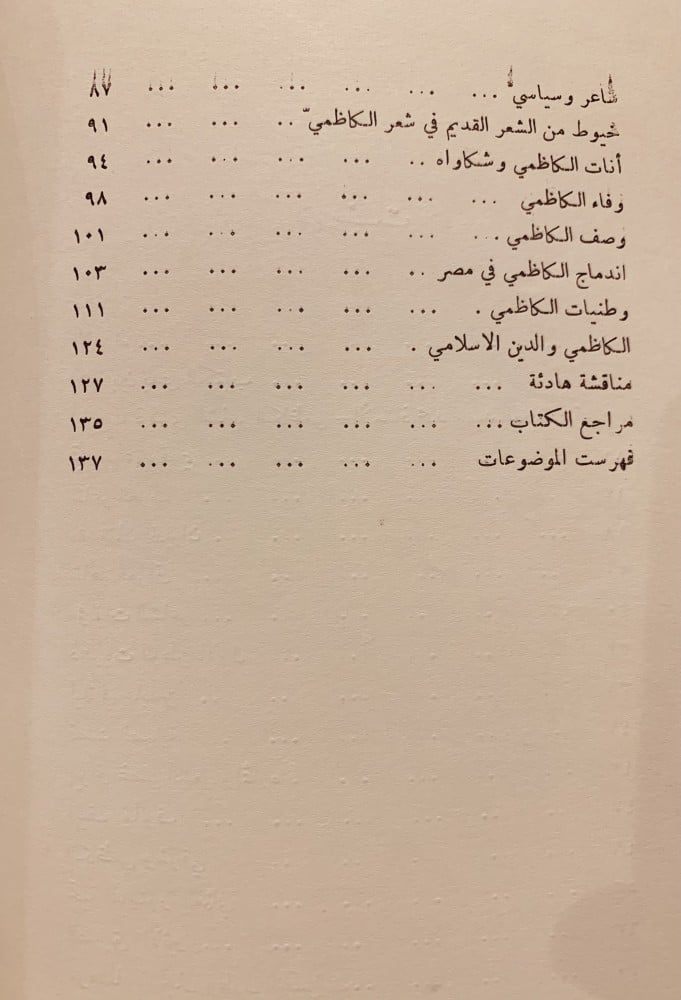 شاعر وسياسي ... ... ... ... ... ... ٨٧
خيوط من الشعر القديم في شعر الكاظمي .. ... ... ... ٩١
أنات الكاظمي وشكاواه .. ... ... ... ... ٩٤
وفاء الكاظمي ... ... ... ... ... ... ٩٨
وصف الكاظمي ... ... ... ... ... ... ١٠١
اندماج الكاظمي في مصر .. ... ... ... ... ١٠٣
وطنيات الكاظمي . ... ... ... ... ... ١١١
الكاظمي والدين الاسلامي . ... ... ... ... ... ١٢٤
مناقشة هادئة ... ... ... ... ... ... ١٢٧
مراجع الكتاب ... ... ... ... ... ... ١٣٥
فهرست الموضوعات ... ... ... ... ... ١٣٧